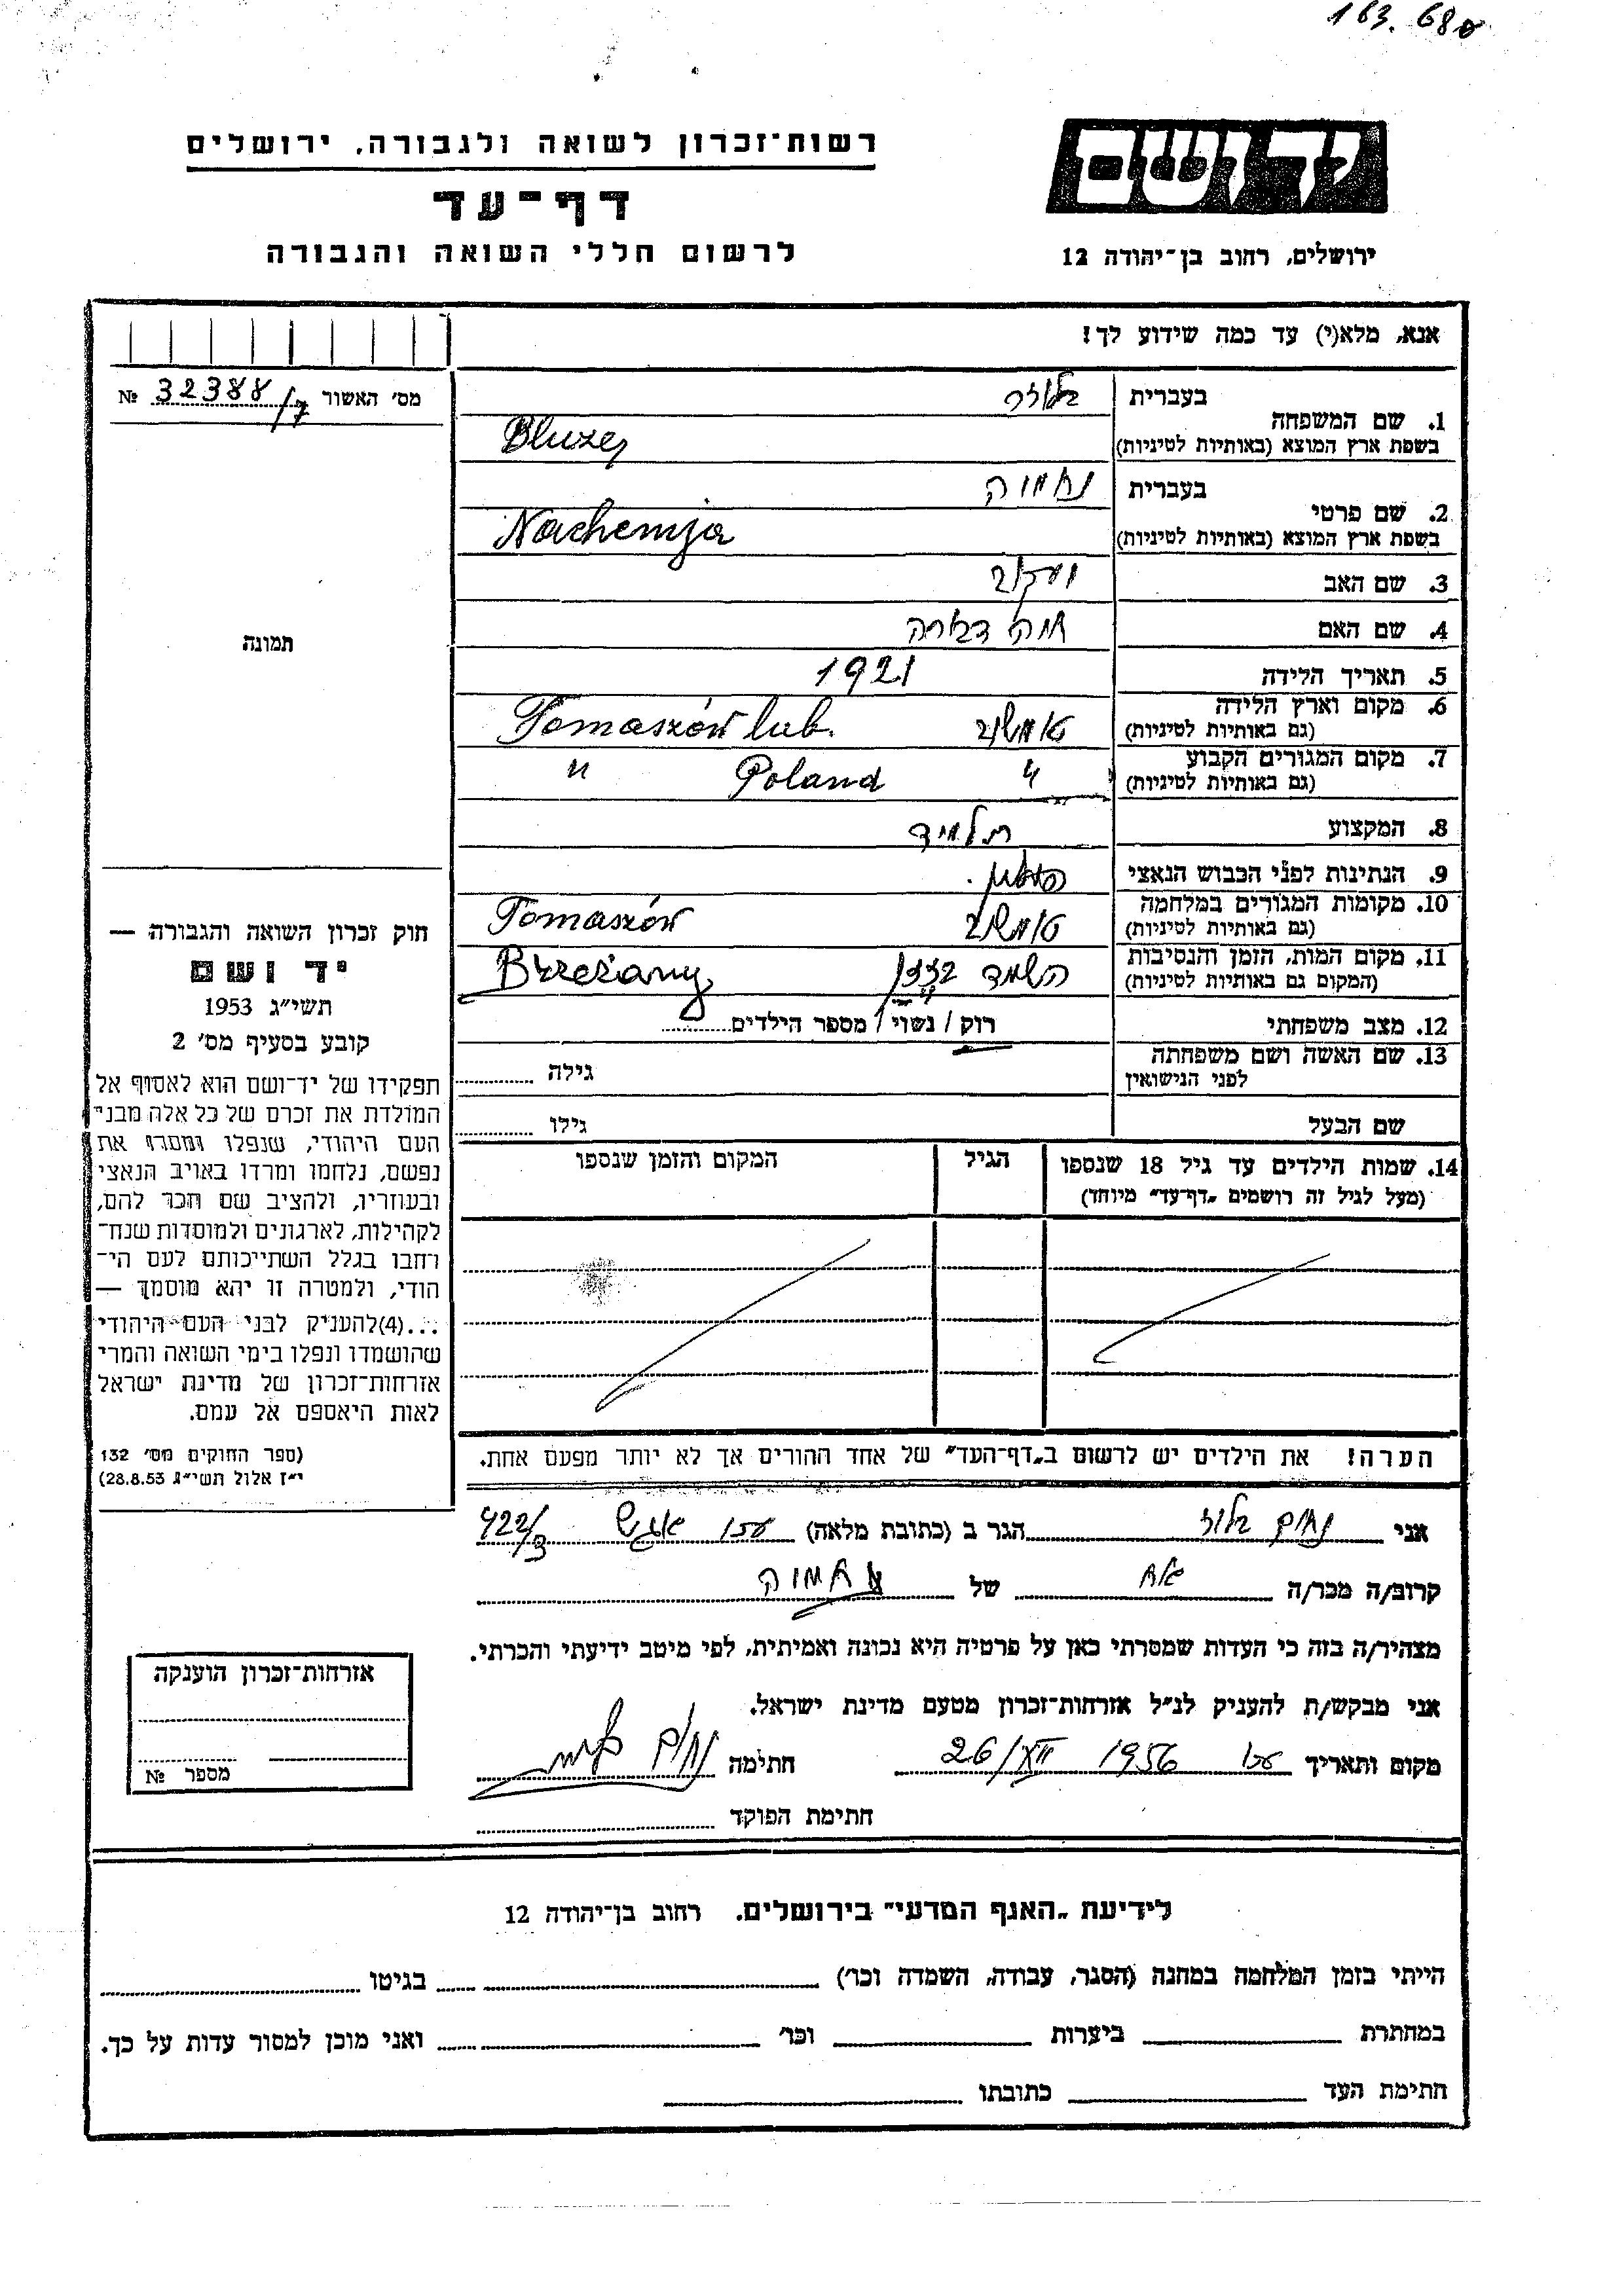 163.680
רשות־זכרון לשואה ולגבורה, ירושלים
דף־עד
לרשום חללי השואה והגבורה
יד ושם
ירושלים, רחוב בן־יהודה 12
אנא, מלא(י) עד כמה שידוע לך!
מס' האשור 32388/7 №
תמונה
1. שם המשפחה בעברית
בשפת ארץ המוצא (באותיות לטיניות) Bluzer
2. שם פרטי בעברית נחמיה
בשפת ארץ המוצא (באותיות לטיניות) Nachemja
3. שם האב יעקב
4. שם האם חיה דבורה
5. תאריך הלידה 1921
6. מקום וארץ הלידה (גם באותיות לטיניות) טומשוב Tomaszów lub.
7. מקום המגורים הקבוע (גם באותיות לטיניות) " Poland "
8. המקצוע תלמיד
9. הנתינות לפני הכבוש הנאצי פולנית.
10. מקומות המגורים במלחמה (גם באותיות לטיניות) טומשוב Tomaszów
11. מקום המות, הזמן והנסיבות (המקום גם באותיות לטיניות) השמד Brzeżany
12. מצב משפחתי רוק / נשוי / מספר הילדים
13. שם האשה ושם משפחתה לפני הנישואין גילה
שם הבעל גילו
14. שמות הילדים עד גיל 18 שנספו הגיל המקום והזמן שנספו
(מעל לגיל זה רושמים „דף־עד" מיוחד)
הערה! את הילדים יש לרשום ב„דף־העד" של אחד ההורים אך לא יותר מפעם אחת.
חוק זכרון השואה והגבורה —
יד ושם
תשי"ג 1953
קובע בסעיף מס' 2
תפקידו של יד־ושם הוא לאסוף אל
המולדת את זכרם של כל אלה מבני
העם היהודי, שנפלו ומסרו את
נפשם, נלחמו ומרדו באויב הנאצי
ובעוזריו, ולהציב שם וזכר להם,
לקהילות, לארגונים ולמוסדות שנח־
רחבו בגלל השתייכותם לעם הי־
הודי, ולמטרה זו יהא מוסמך —
...(4)להעניק לבני העם היהודי
שהושמדו ונפלו בימי השואה והמרי
אזרחות־זכרון של מדינת ישראל
לאות היאספם אל עמם.
(ספר החוקים מס' 132
י"ז אלול תשי"ג 28.8.53)
אני נחום בלוזר הגר ב (כתובת מלאה) עכו 422/3
קרוב/ה מכר/ה אח של נחמיה
מצהיר/ה בזה כי העדות שמסרתי כאן על פרטיה היא נכונה ואמיתית, לפי מיטב ידיעתי והכרתי.
אני מבקש/ת להעניק לנ"ל אזרחות־זכרון מטעם מדינת ישראל.
מקום ותאריך עכו 1956 26/XII חתימה נחום
חתימת הפוקד
אזרחות־זכרון הוענקה
מספר №
לידיעת „האגף המדעי" בירושלים. רחוב בן־יהודה 12
הייתי בזמן המלחמה במחנה (הסגר, עבודה, השמדה וכו') בגיטו
במחתרת ביערות וכו' ואני מוכן למסור עדות על כך.
חתימת העד כתובתו